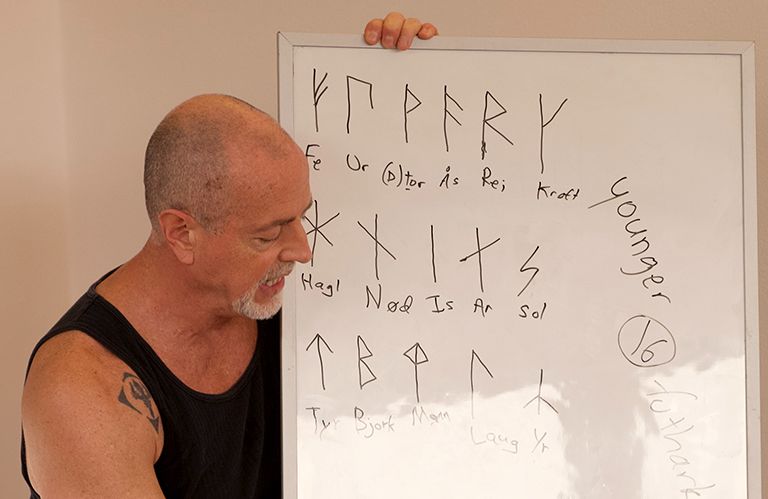 ᚠ ᚢ ᚦ ᚬ ᚱ ᚴ
Fe Ur (D)tor Ås Rej Kraft
ᚼ ᚾ ᛁ ᛅ ᛋ
Hagl Nød Is Ar Sol
ᛏ ᛒ ᛘ ᛚ ᛦ
Tyr Bjørk Mann Laug Yr
younger
16
futhark